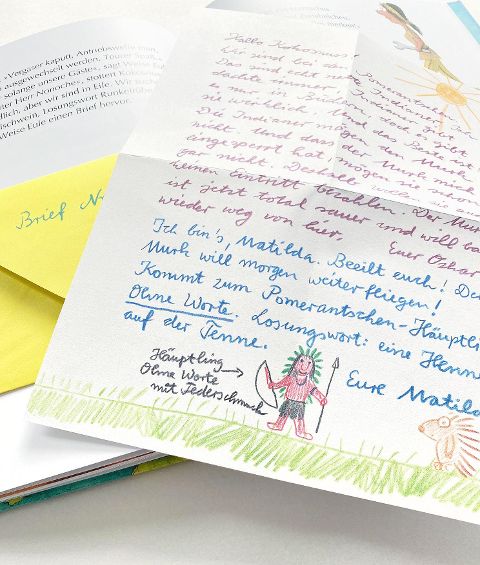 »Vergaser kaputt, Antriebswelle
ausgewechselt werden, Tourer
solange unsere Gäste«, sagt
Herr Nomoches, stottert Kokosnuss
aber wir sind in Eile. Wir
schwein, Losungswort Runkelrübe
Weise Eule einen Brief hervor.
Brief
Hallo Kokosnuss
Wir sind bei den Pomerantschen
Das sind echte Indianer
dachte immer, Indianer gibt
es nur in Büchern, doch es gibt
sie wirklich. Und das Beste ist
Die Indianer mögen den Murk
nicht. Und dass der Murk mich
eingesperrt hat, mögen sie schon
gar nicht. Deshalb
keinen Eintritt bezahlen. Der Murk
ist jetzt total sauer und will
wieder weg von hier. Euer Oskar
Ich bin's, Matilda. Beeilt euch! Der
Murk will morgen weiterfliegen!
Kommt zum Pomerantschen-Häuptling
Ohne Worte. Losungswort: eine Henne
auf der Tenne.
Eure Matilda
Häuptling
Ohne Worte
mit Federschmuck